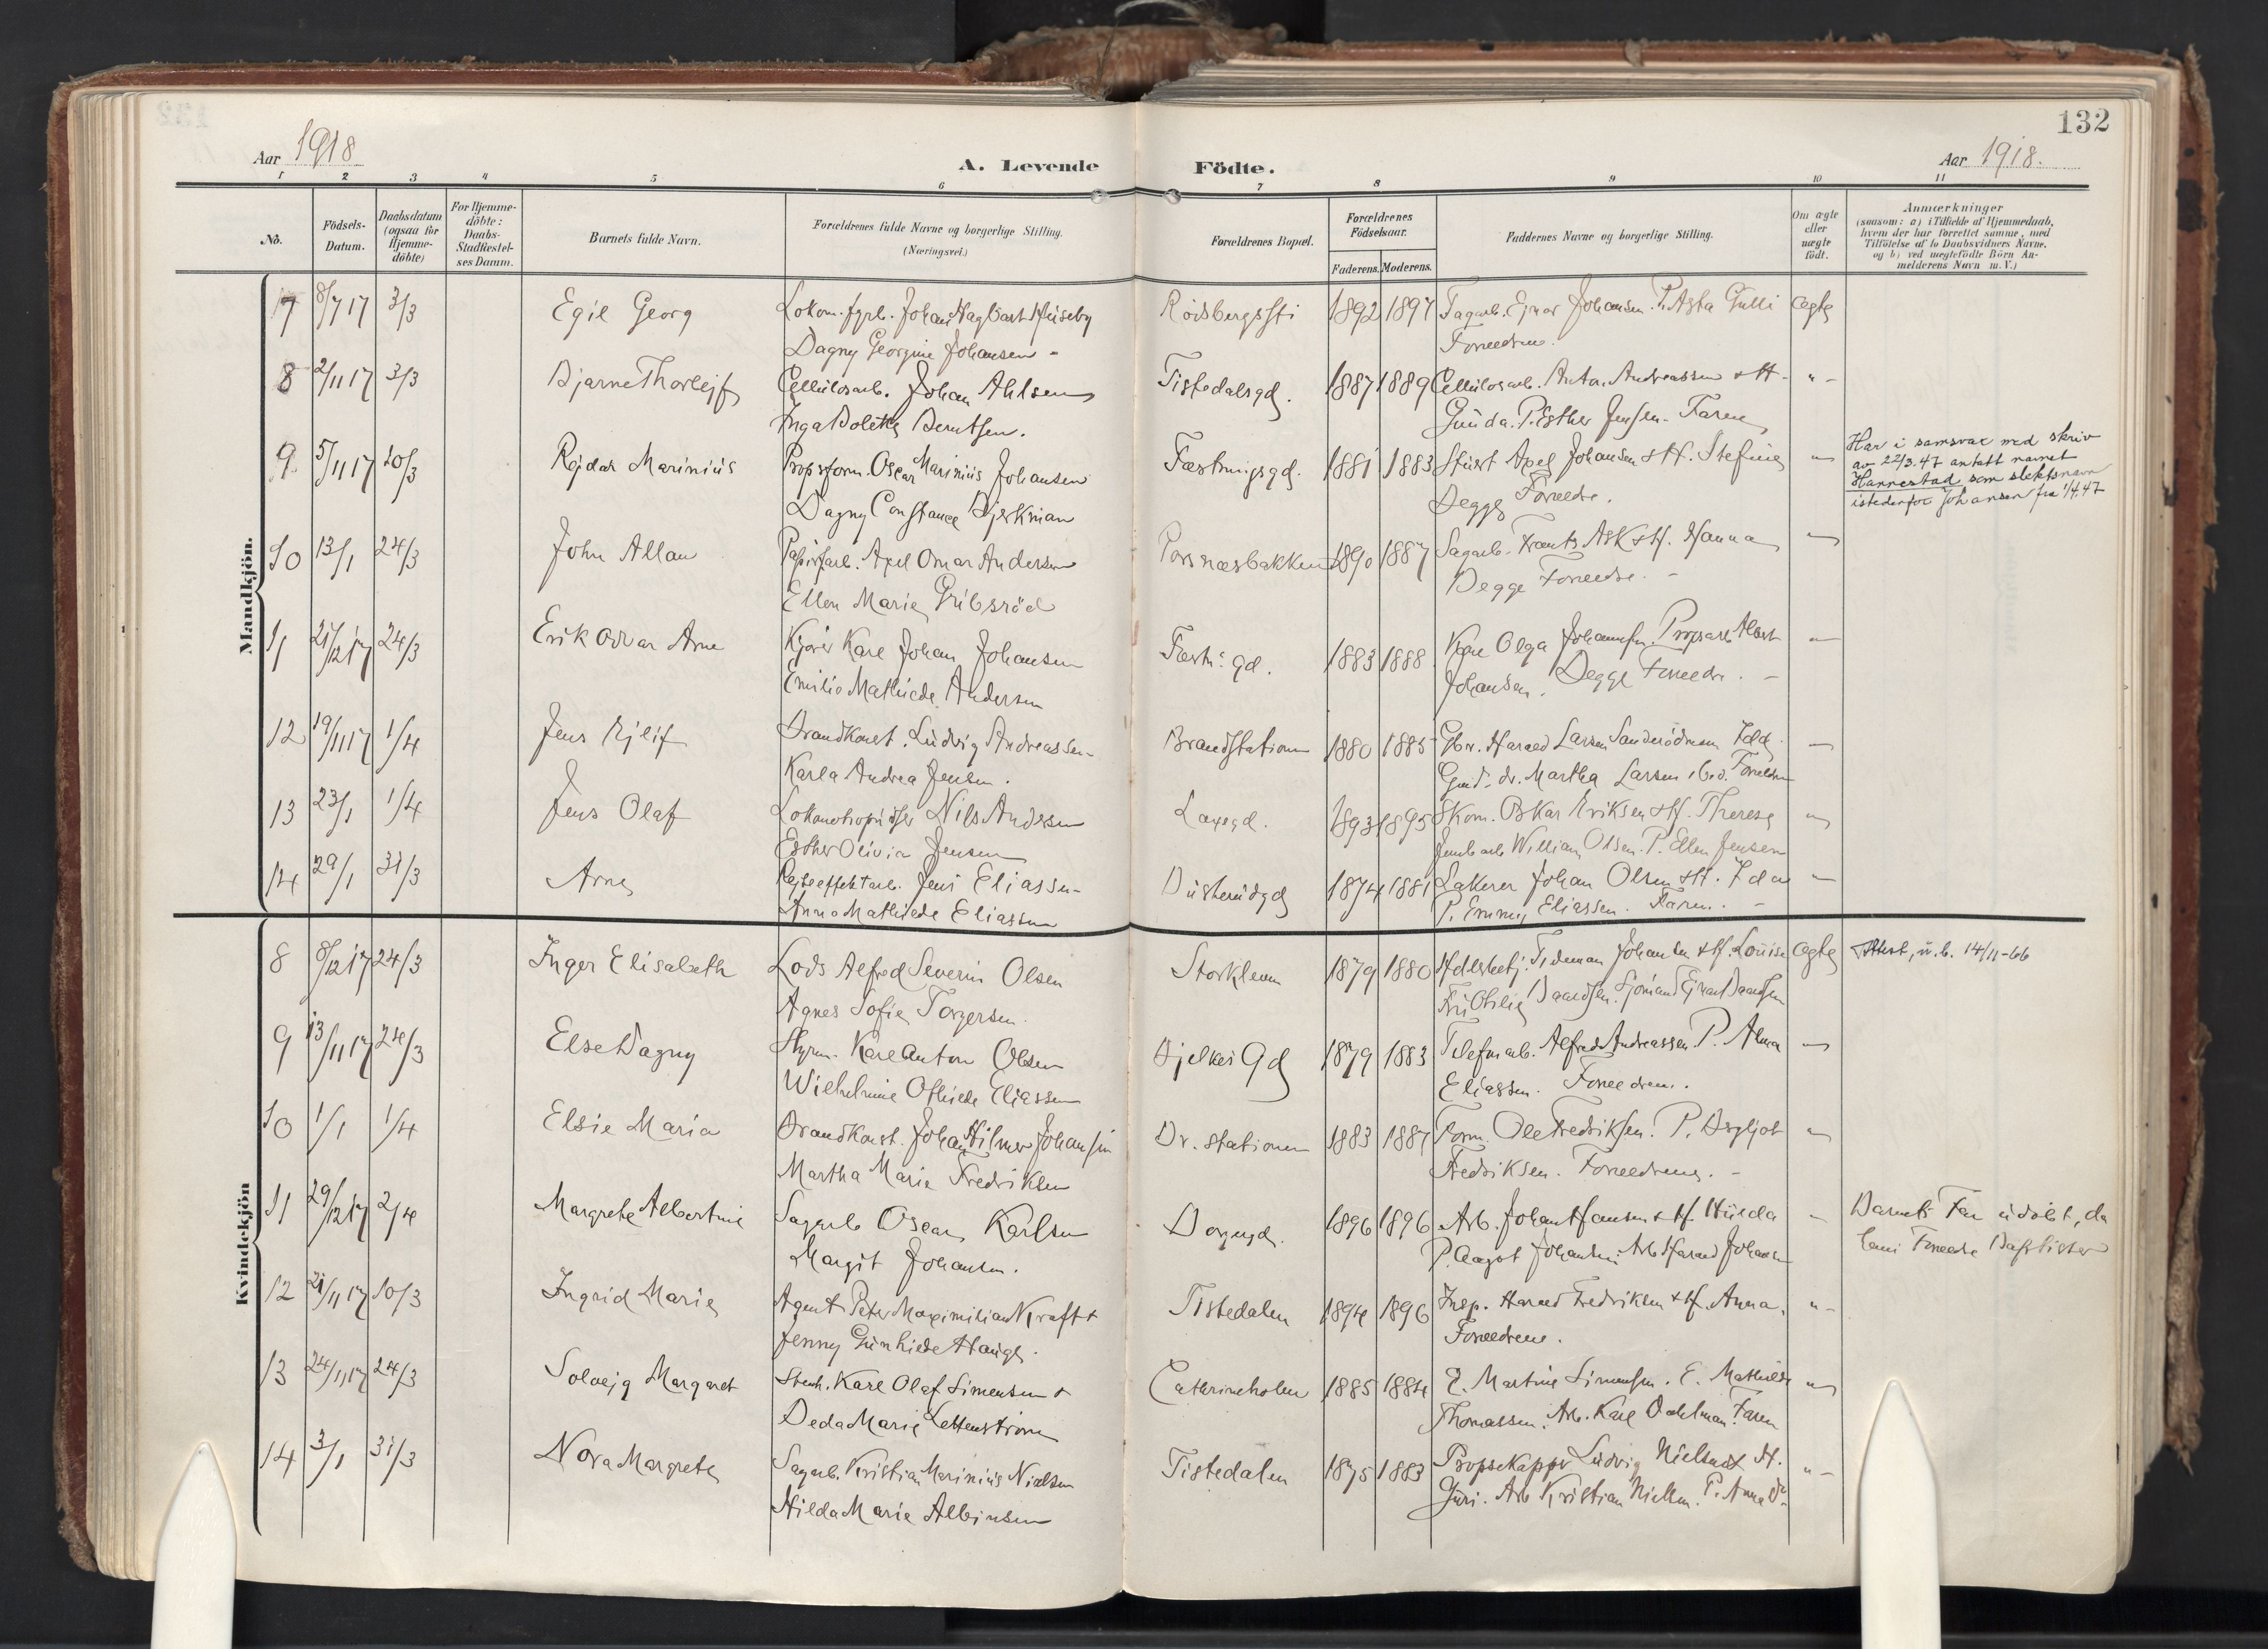 132
Aar 1918
A. Levende Födte.
Aar 1918.
1 2 3 4 5 6 7 8 9 10 11
No.
Födsels-Datum.
Daabsdatum (ogsaa for Hjemme-döbte)
For Hjemme-döbte: Daabs-Stadfestel-ses Datum.
Barnets fulde Navn.
Forældrenes fulde Navne og borgerlige Stilling. (Næringsvei.)
Forældrenes Bopæl.
Forældrenes Födselsaar.
Faderens. Moderens.
Faddernes Navne og borgerlige Stilling.
Om ægte eller uægte födt.
Anmærkninger
(saasom: a) i Tilfælde af Hjemmedaab, hvem der har forrettet samme, med Tilföielse af to Daabsvidners Navne, og b) ved uægtefödte Börn An-melderens Navn m. V.)
Mandkjön.
7 8/7 17 3/3 Egil Georg Lokom. fyrb. Johan Hagbart Huseby Rödsbergssti 1892 1897 Sagarb. Ejnar Johansen. P. Asta Gulli ægte
Dagny Georgine Johansen - Forældrene.
8 2/11 17 3/3 Bjarne Thorlejf Cellulosarb. Johan Ahlsen Tistedalsgd. 1887 1889 Cellulosarb. Anton Andreassen & H. " -
Inga Bolette Berntsen. Gunda. P. Esther Jensen. Faren
9 5/11 17 10/3 Rejdar Marinius Propsform. Oscar Marinius Johansen Fæstningsgd. 1881 1883 Stuert Axel Johansen & H. Stefine "
Dagny Constance Bjerkman Begge Forældre.
Har i samsvar med skriv
av 22/3.47 antatt navnet
Hannestad som slektsnavn
istedenfor Johansen fra 1/4.47
10 13/1 24/3 John Allan Papirfarb. Axel Omar Andersen Porsnæsbakken 1890 1887 Sagarb. Frants Ask & H. Hanna "
Ellen Marie Gribsröd Begge Forældre. -
11 21/12 17 24/3 Erik Odvar Arne Kjører Karl Johan Johansen Fæstn. gd. 1883 1888 Olga Johannesen. Propsarb. Albert "
Emilie Mathilde Andersen Johansen. Begge Forældre. -
12 19/11 17 1/4 Jens Ejlif Brandkonst. Ludvig Andreassen - Brandstationen 1880 1885 Gbr. Harald Larsen Sanderödmoen Idd. "
Karla Andrea Jensen. Gmd. dr. Martha Larsen ibd. Forældrene
13 23/1 1/4 Jens Olaf Lokomotivpudser Nils Andersen Laxegd. 1893 1895 Skom. Oskar Eriksen & H. Therese "
Esther Olivia Jensen Jernbarb. William Olsen. P. Ellen Jensen
14 29/1 31/3 Arne Rejseeffektarb. Jens Eliassen - Busterudgd 1874 1881 Lakerer Johan Olsen & H. Ida "
Anna Mathilde Eliassen P. Emmy Eliassen. Faren. -
Kvindekjön
8 8/12 17 24/3 Inger Elisabeth Lods Alfred Severin Olsen Storklevn 1879 1880 Hdlsbetj. Tideman Johansen & H. Louise ægte Attest, u.b. 14/11-66
Agnes Sofie Torgersen. Fru Othilie Baardsen. Sjömand Ejnar Baardsen
9 13/11 17 24/3 Else Dagny Styrm. Karl Anton Olsen Bjelkes Gd 1879 1883 Telefonarb. Alfred Andreassen. P. Alma "
Wilhelmine Othilde Eliassen Eliassen. Forældrene.
10 1/1 1/4 Elsie Maria Brandkonst. Johan Hilmar Johansen Br. stationen 1883 1887 Form. Ole Fredriksen. P. Bergljot "
Martha Marie Fredriksen Fredriksen. Forældrene. -
11 29/12 17 2/4 Margrete Albertine Sagarb. Oscar Karlsen Borgergd. 1896 1896 Arb. Johan Hansen & H. Hulda "
Margit Johansen. P. Aagot Johansen. Arb. Harald Johansen
Barnets Far udöbt, da
hans Forældre Baptister
12 21/11 17 10/3 Ingrid Marie Agent Peter Maximilian Kraft & Tistedalen 1894 1896 Insp. Harald Fredriksen & H. Anna. " -
Jenny Gunhilde Hauge. Forældrene.
13 24/11 17 24/3 Solvejg Margaret Stenh. Karl Olaf Simensen & Cathrineholm 1885 1884 E. Martine Simensen. E. Mathilde "
Beda Marie Lettenström Thomassen. Arb. Karl Dahlman. Faren
14 3/1 31/3 Nora Margrete Sagarb. Kristian Marinius Nielsen Tistedalen 1875 1883 Propsekapper Ludvig Nielsen & H. " -
Hilda Marie Albinsen Guri. Arb. Kristian Nielsen. P. Anna do